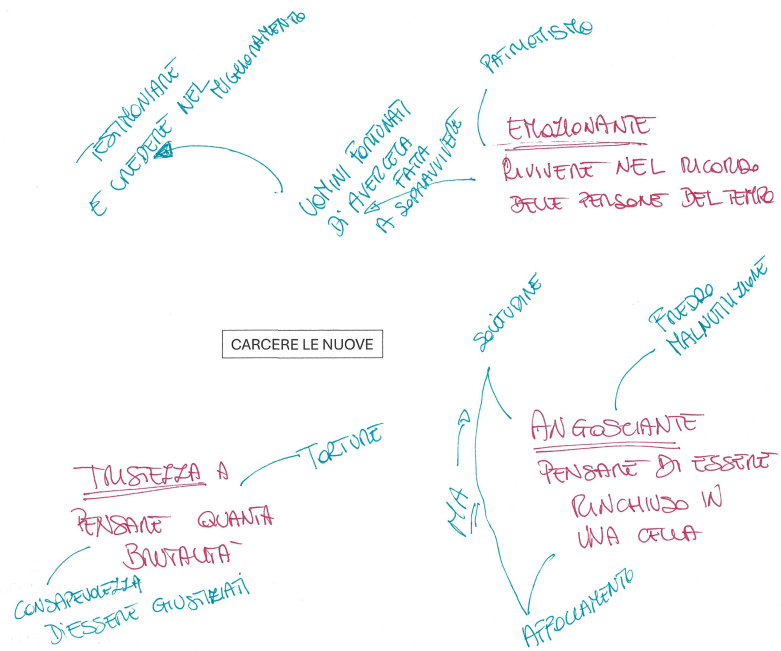 TESTIMONIARE
E CREDERE NEL
MIGLIORAMENTO
UOMINI FORTUNATI
DI AVERCELA
FATTA
A SOPRAVVIVERE
PATRIOTTISMO
EMOZIONANTE
RIVIVERE NEL RICORDO
DELLE PERSONE DEL TEMPO
CARCERE LE NUOVE
SOLITUDINE
FREDDO
MALNUTRIZIONE
ANGOSCIANTE
PENSARE DI ESSERE
RINCHIUSO IN
UNA CELLA
MA
AFFOLLAMENTO
TORTURE
TRISTEZZA A
PENSARE QUANTA
BRUTALITÀ
CONSAPEVOLEZZA
D'ESSERE GIUSTIZIATI